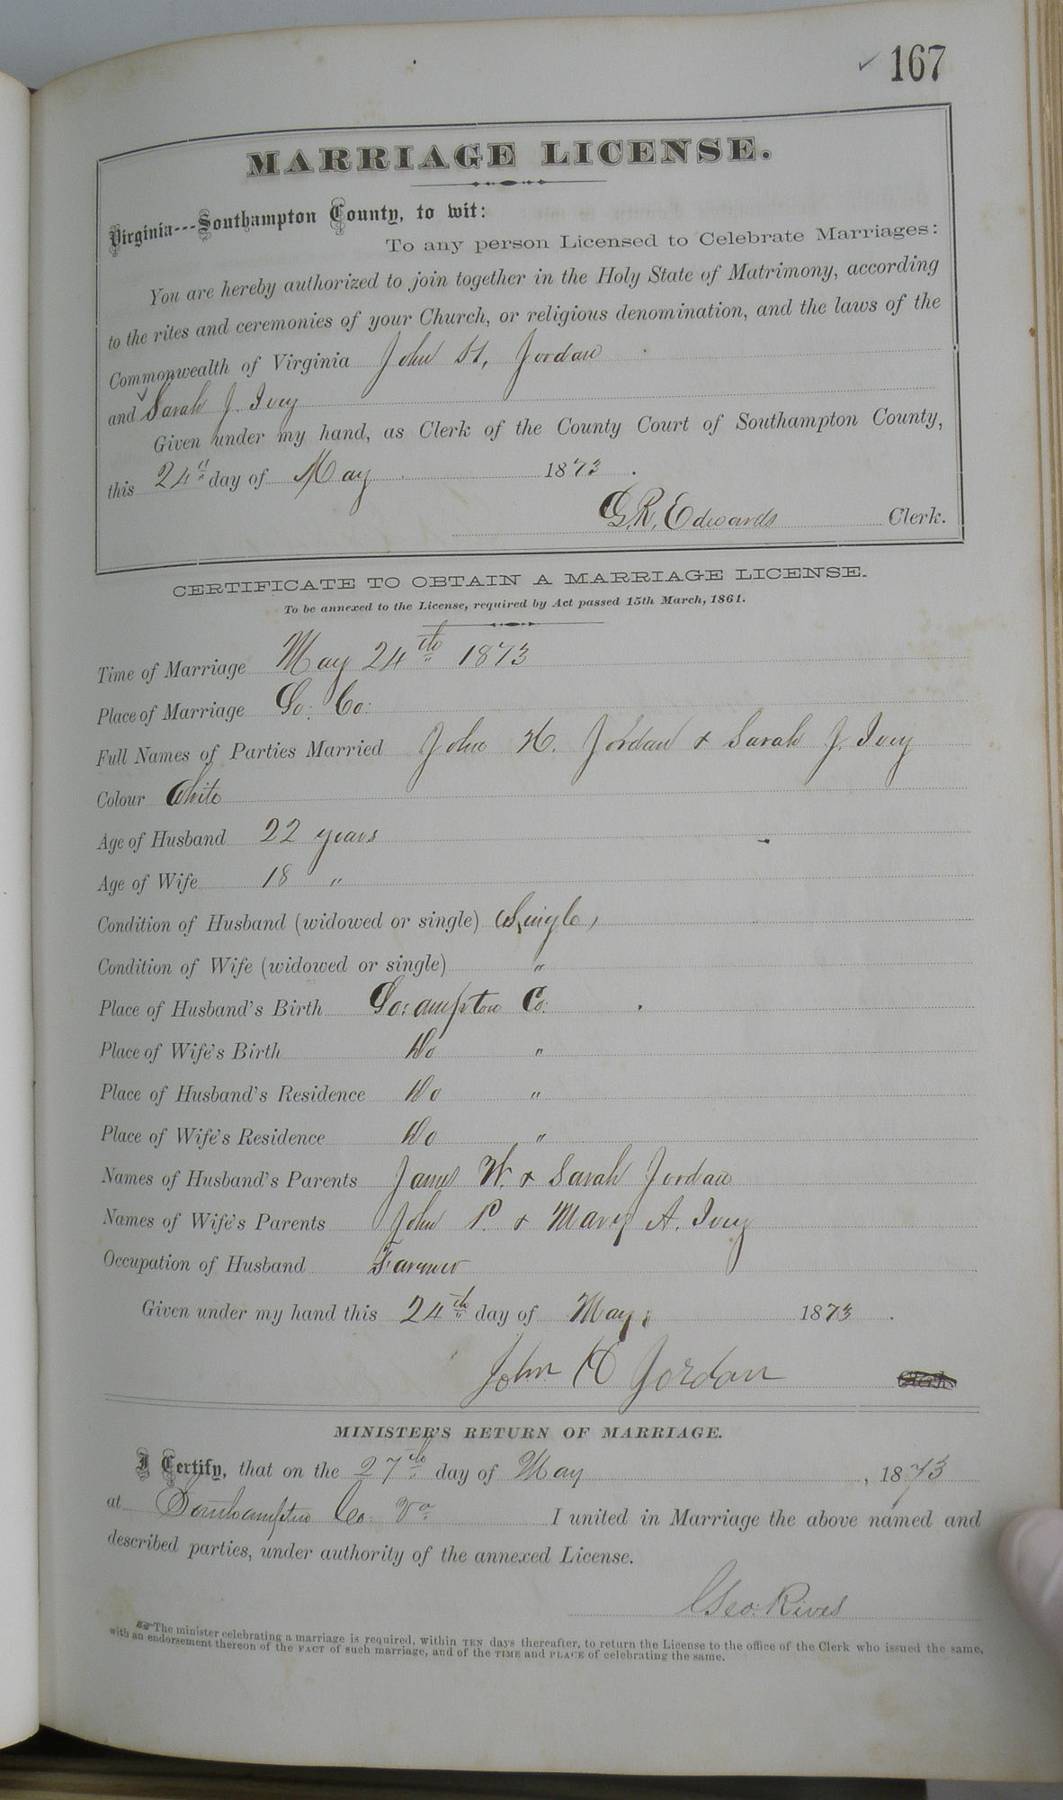 167
MARRIAGE LICENSE.
Virginia---Southampton County, to wit:
To any person Licensed to Celebrate Marriages:
You are hereby authorized to join together in the Holy State of Matrimony, according
to the rites and ceremonies of your Church, or religious denomination, and the laws of the
Commonwealth of Virginia John H. Jordan
and Sarah J. Ivey
Given under my hand, as Clerk of the County Court of Southampton County,
this 24th day of May 1873.
G.R. Edwards Clerk.
CERTIFICATE TO OBTAIN A MARRIAGE LICENSE.
To be annexed to the License, required by Act passed 15th March, 1861.
Time of Marriage May 24th 1873
Place of Marriage So: Co:
Full Names of Parties Married John H. Jordan & Sarah J. Ivey
Colour White
Age of Husband 22 years
Age of Wife 18 "
Condition of Husband (widowed or single) Single,
Condition of Wife (widowed or single) "
Place of Husband's Birth So:ampton Co:
Place of Wife's Birth Do "
Place of Husband's Residence Do "
Place of Wife's Residence Do "
Names of Husband's Parents James W. & Sarah Jordan
Names of Wife's Parents John P. & Mary A. Ivey
Occupation of Husband Farmer
Given under my hand this 24th day of May, 1873.
John H Jordan
MINISTER'S RETURN OF MARRIAGE.
I Certify, that on the 27th day of May, 1873
at Southampton Co: Va I united in Marriage the above named and
described parties, under authority of the annexed License.
Geo: Rives
The minister celebrating a marriage is required, within TEN days thereafter, to return the License to the office of the Clerk who issued the same,
with an endorsement thereon of the FACT of such marriage, and of the TIME and PLACE of celebrating the same.